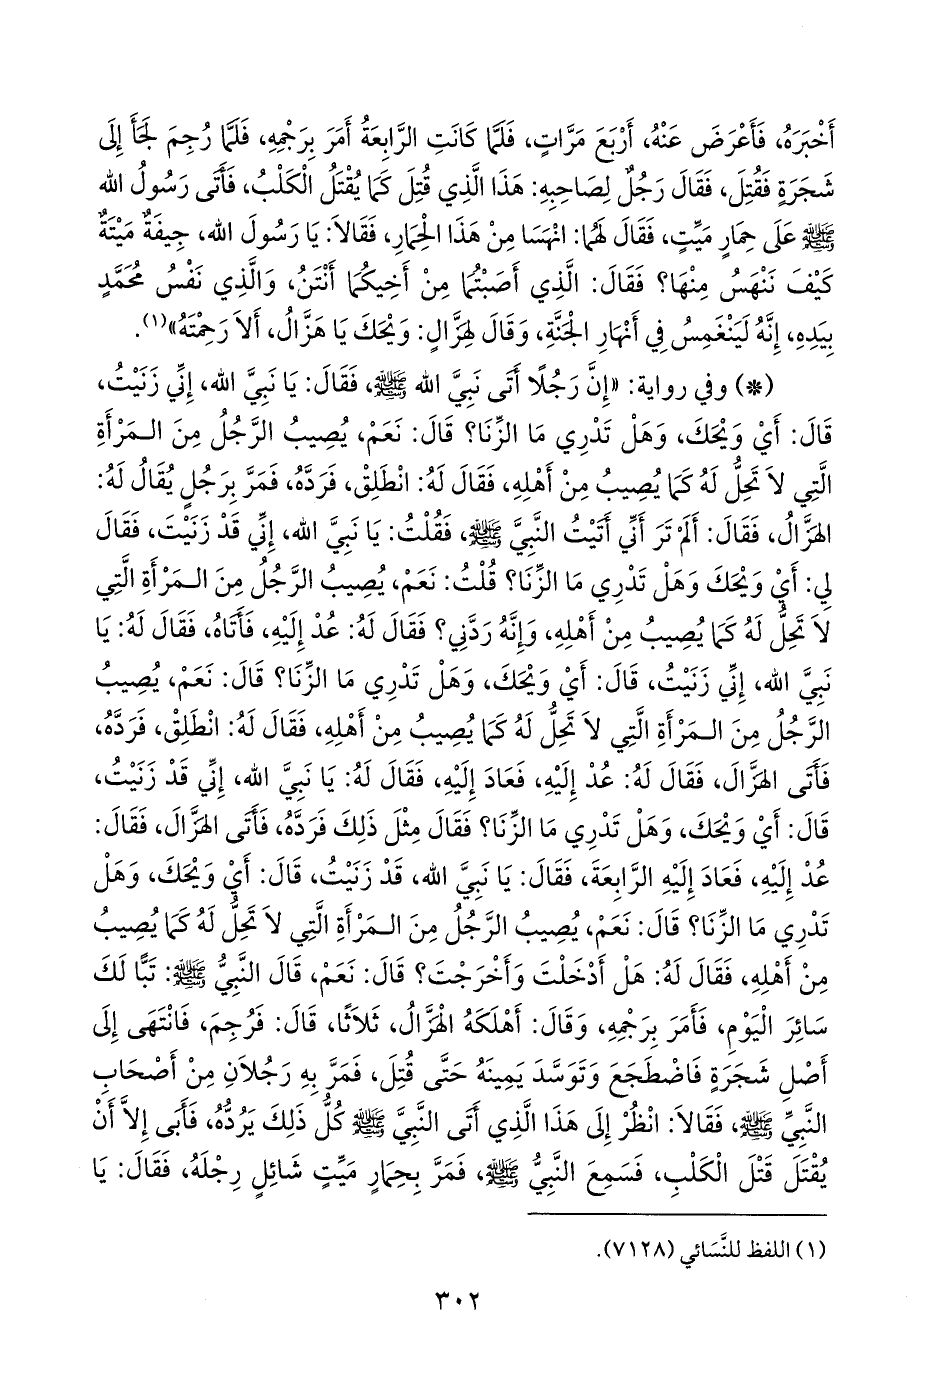 أَخْبَرَهُ، فَأَعْرَضَ عَنْهُ، أَرْبَعَ مَرَّاتٍ، فَلَمَّا كَانَتِ الرَّابِعَةُ أَمَرَ بِرَجْمِهِ، فَلَمَّا رُجِمَ لَجَأَ إِلَى
شَجَرَةٍ فَقُتِلَ، فَقَالَ رَجُلٌ لِصَاحِبِهِ: هَذَا الَّذِي قُتِلَ كَمَا يُقْتَلُ الْكَلْبُ، فَأَتَى رَسُولُ الله
ﷺ عَلَى حِمَارٍ مَيِّتٍ، فَقَالَ لَهُمَا: انْهَسَا مِنْ هَذَا الْحِمَارِ، فَقَالاَ: يَا رَسُولَ الله، جِيفَةٌ مَيْتَةٌ
كَيْفَ نَنْهَسُ مِنْهَا؟ فَقَالَ: الَّذِي أَصَبْتُمَا مِنْ أَخِيكُمَا أَنْتَنُ، وَالَّذِي نَفْسُ مُحَمَّدٍ
بِيَدِهِ، إِنَّهُ لَيَنْغَمِسُ فِي أَنْهَارِ الْجَنَّةِ، وَقَالَ لِهَزَّالٍ: وَيْحَكَ يَا هَزَّالُ، أَلاَ رَحِمْتَهُ»(١).
(*) وفي رواية: «إِنَّ رَجُلًا أَتَى نَبِيَّ الله ﷺ، فَقَالَ: يَا نَبِيَّ الله، إِنِّي زَنَيْتُ،
قَالَ: أَيْ وَيْحَكَ، وَهَلْ تَدْرِي مَا الزِّنَا؟ قَالَ: نَعَمْ، يُصِيبُ الرَّجُلُ مِنَ الـمَرْأَةِ
الَّتِي لاَ تَحِلُّ لَهُ كَمَا يُصِيبُ مِنْ أَهْلِهِ، فَقَالَ لَهُ: انْطَلِقْ، فَرَدَّهُ، فَمَرَّ بِرَجُلٍ يُقَالُ لَهُ:
الهَزَّالُ، فَقَالَ: أَلَمْ تَرَ أَنِّي أَتَيْتُ النَّبِيَّ ﷺ، فَقُلْتُ: يَا نَبِيَّ الله، إِنِّي قَدْ زَنَيْتَ، فَقَالَ
لِي: أَيْ وَيْحَكَ وَهَلْ تَدْرِي مَا الزِّنَا؟ قُلْتُ: نَعَمْ، يُصِيبُ الرَّجُلُ مِنَ الـمَرْأَةِ الَّتِي
لاَ تَحِلُّ لَهُ كَمَا يُصِيبُ مِنْ أَهْلِهِ، وَإِنَّهُ رَدَّنِي؟ فَقَالَ لَهُ: عُدْ إِلَيْهِ، فَأَتَاهُ، فَقَالَ لَهُ: يَا
نَبِيَّ الله، إِنِّي زَنَيْتُ، قَالَ: أَيْ وَيْحَكَ، وَهَلْ تَدْرِي مَا الزِّنَا؟ قَالَ: نَعَمْ، يُصِيبُ
الرَّجُلُ مِنَ الـمَرْأَةِ الَّتِي لاَ تَحِلُّ لَهُ كَمَا يُصِيبُ مِنْ أَهْلِهِ، فَقَالَ لَهُ: انْطَلِقْ، فَرَدَّهُ،
فَأَتَى الهَزَّالَ، فَقَالَ لَهُ: عُدْ إِلَيْهِ، فَعَادَ إِلَيْهِ، فَقَالَ لَهُ: يَا نَبِيَّ الله، إِنِّي قَدْ زَنَيْتُ،
قَالَ: أَيْ وَيْحَكَ، وَهَلْ تَدْرِي مَا الزِّنَا؟ فَقَالَ مِثْلَ ذَلِكَ فَرَدَّهُ، فَأَتَى الهَزَّالَ، فَقَالَ:
عُدْ إِلَيْهِ، فَعَادَ إِلَيْهِ الرَّابِعَةَ، فَقَالَ: يَا نَبِيَّ الله، قَدْ زَنَيْتُ، قَالَ: أَيْ وَيْحَكَ، وَهَلْ
تَدْرِي مَا الزِّنَا؟ قَالَ: نَعَمْ، يُصِيبُ الرَّجُلُ مِنَ الـمَرْأَةِ الَّتِي لاَ تَحِلُّ لَهُ كَمَا يُصِيبُ
مِنْ أَهْلِهِ، فَقَالَ لَهُ: هَلْ أَدْخَلْتَ وَأَخْرَجْتَ؟ قَالَ: نَعَمْ، قَالَ النَّبِيُّ ﷺ: تَبًّا لَكَ
سَائِرَ الْيَوْمِ، فَأَمَرَ بِرَجْمِهِ، وَقَالَ: أَهْلَكَهُ الهَزَّالُ، ثَلاَثًا، قَالَ: فَرُجِمَ، فَانْتَهَى إِلَى
أَصْلِ شَجَرَةٍ فَاضْطَجَعَ وَتَوَسَّدَ يَمِينَهُ حَتَّى قُتِلَ، فَمَرَّ بِهِ رَجُلاَنِ مِنْ أَصْحَابِ
النَّبِيِّ ﷺ، فَقَالاَ: انْظُرْ إِلَى هَذَا الَّذِي أَتَى النَّبِيَّ ﷺ كُلُّ ذَلِكَ يَرُدُّهُ، فَأَبَى إِلاَّ أَنْ
يُقْتَلَ قَتْلَ الْكَلْبِ، فَسَمِعَ النَّبِيُّ ﷺ، فَمَرَّ بِحِمَارٍ مَيِّتٍ شَائِلٍ رِجْلَهُ، فَقَالَ: يَا
(١) اللفظ للنَّسَائي (٧١٢٨).
٣٠٢